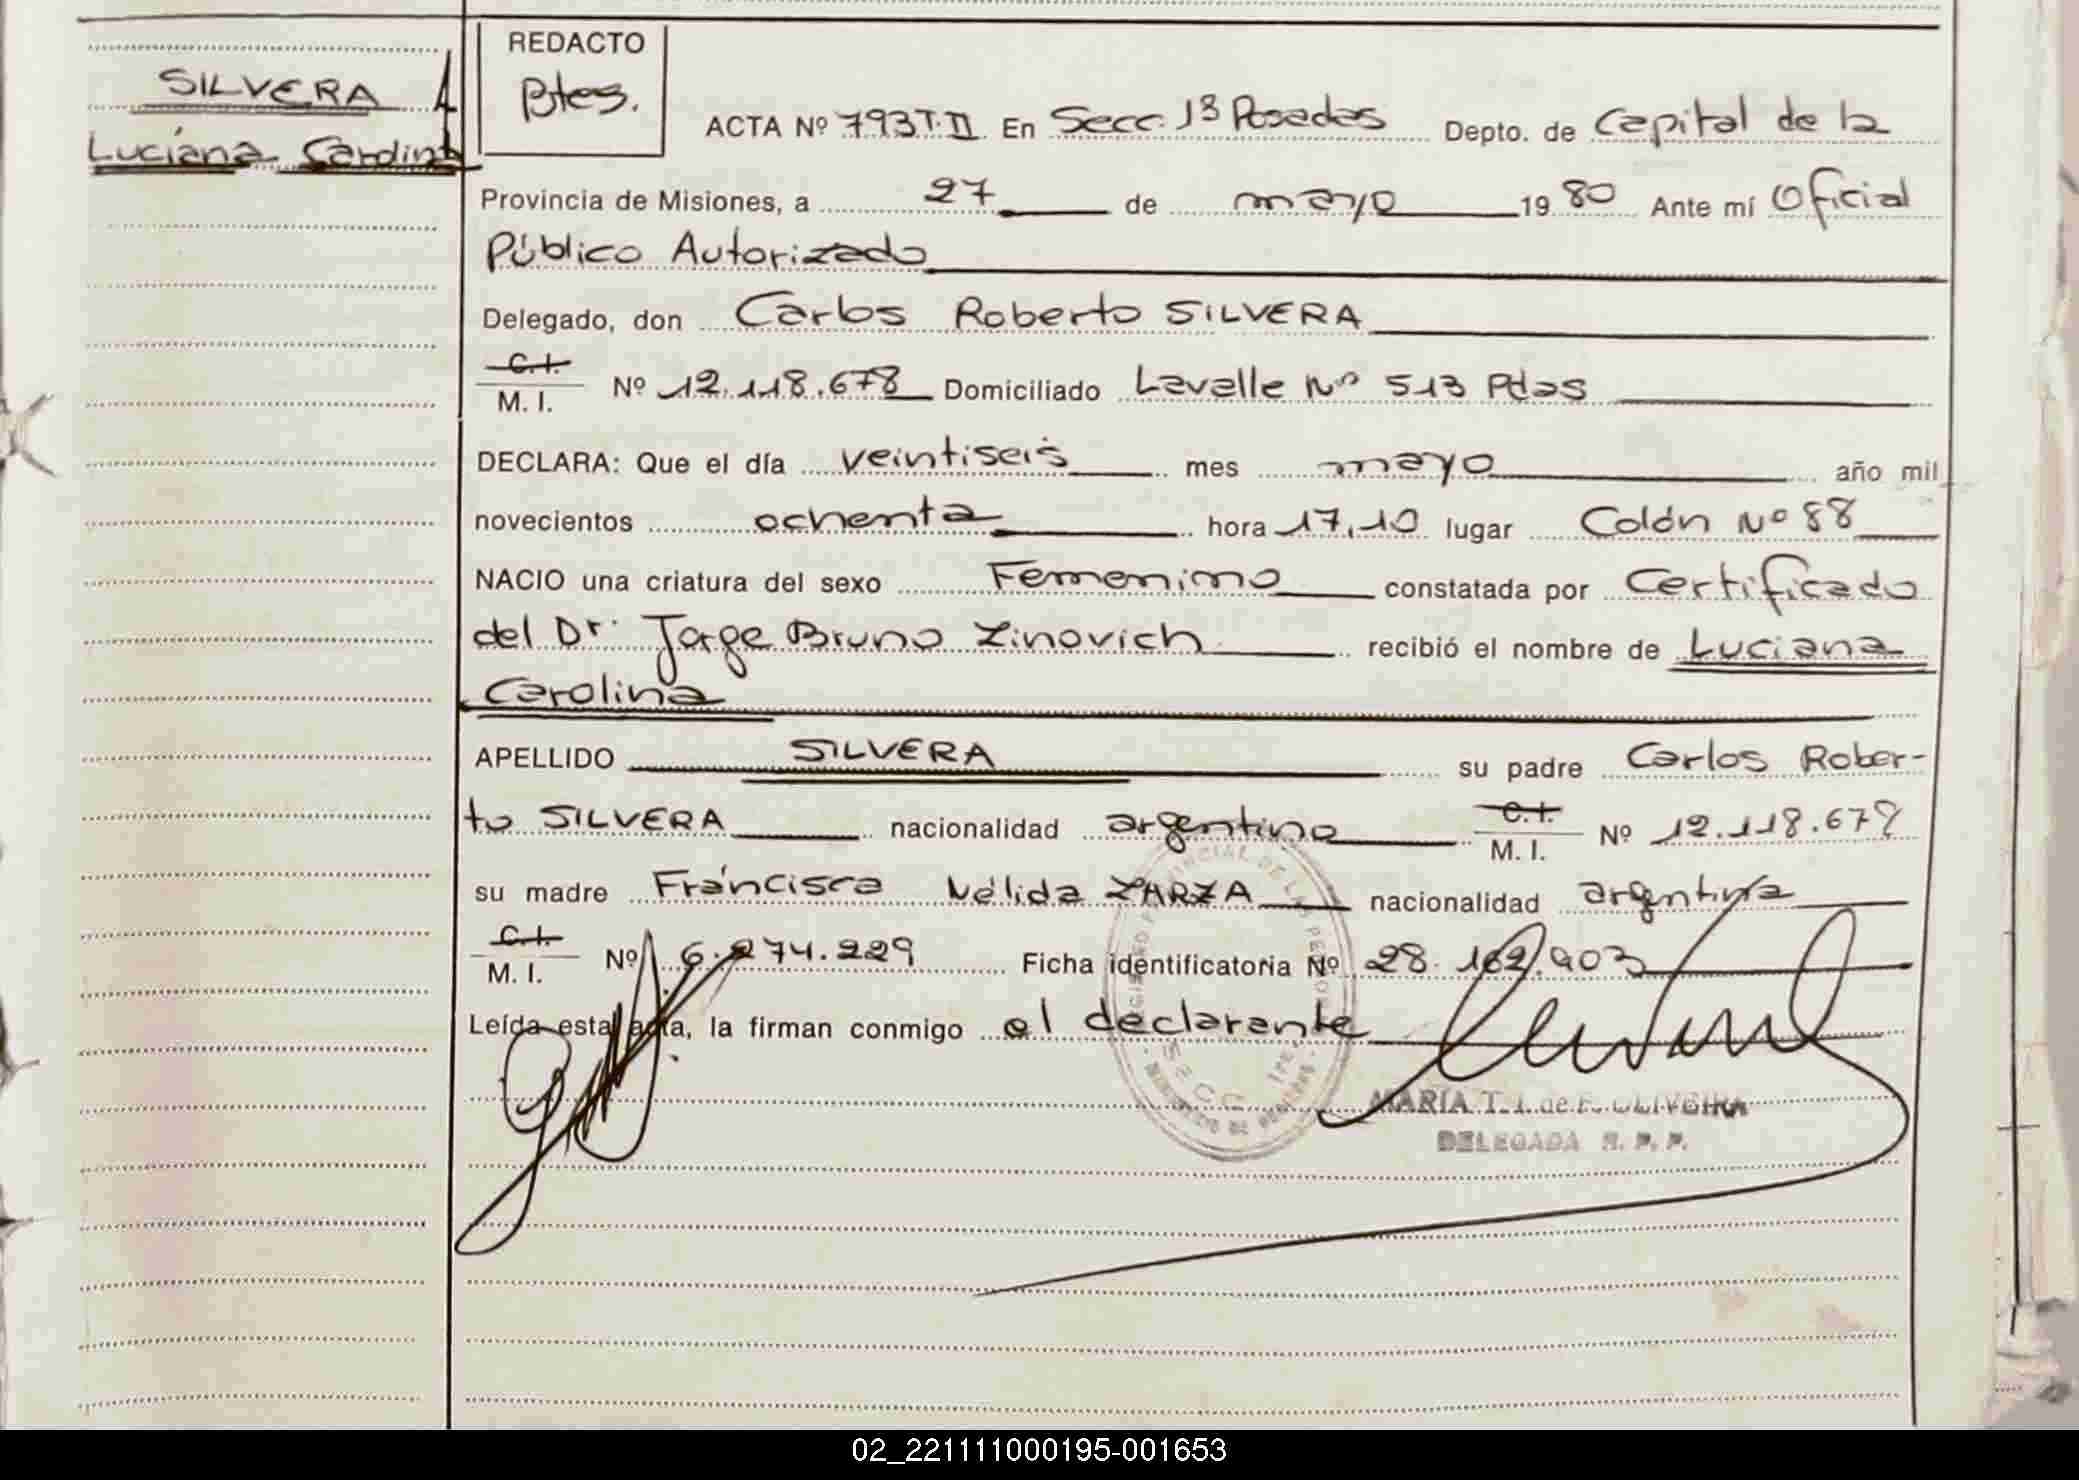 SILVERA
Luciana Carolina
REDACTO
Btes.
ACTA Nº 793 T. II En Secc. 1ª Posadas Depto. de Capital de la
Provincia de Misiones, a 27 de mayo 1980 Ante mí Oficial
Público Autorizado
Delegado, don Carlos Roberto SILVERA
C.I.
M. I. Nº 12.118.678 Domiciliado Lavalle Nº 513 Pdas
DECLARA: Que el día veintiseis mes mayo año mil
novecientos ochenta hora 17,10 lugar Colón Nº 88
NACIO una criatura del sexo Femenino constatada por Certificado
del Dr. Jorge Bruno Zinovich recibió el nombre de Luciana
Carolina
APELLIDO SILVERA su padre Carlos Rober-
to SILVERA nacionalidad argentino C.I.
M. I. Nº 12.118.678
su madre Francisca Nélida ZARZA nacionalidad argentina
C.I.
M. I. Nº 6.274.229 Ficha identificatoria Nº 28.162.903
Leída esta acta, la firman conmigo el declarante
MARIA T. I. de F. OLIVEIRA
DELEGADA R. P. P.
02_221111000195-001653